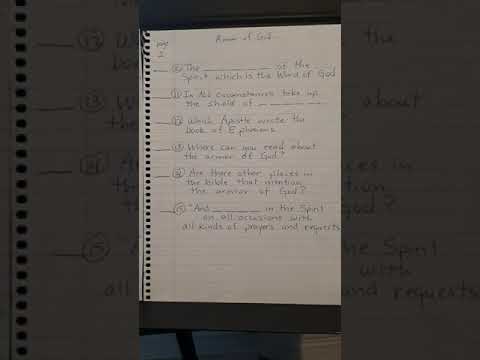 page
2
Armor of God
⑩ The __________ of the
Spirit which is the Word of God
⑪ In ALL circumstances take up
the shield of __________
⑫ Which Apostle wrote the
book of Ephesians
⑬ Where can you read about
the armor of God?
⑭ Are there other places in
the bible that mention
the armor of God?
⑮ "And ________ in the Spirit
on all occasions with
all kinds of prayers and requests